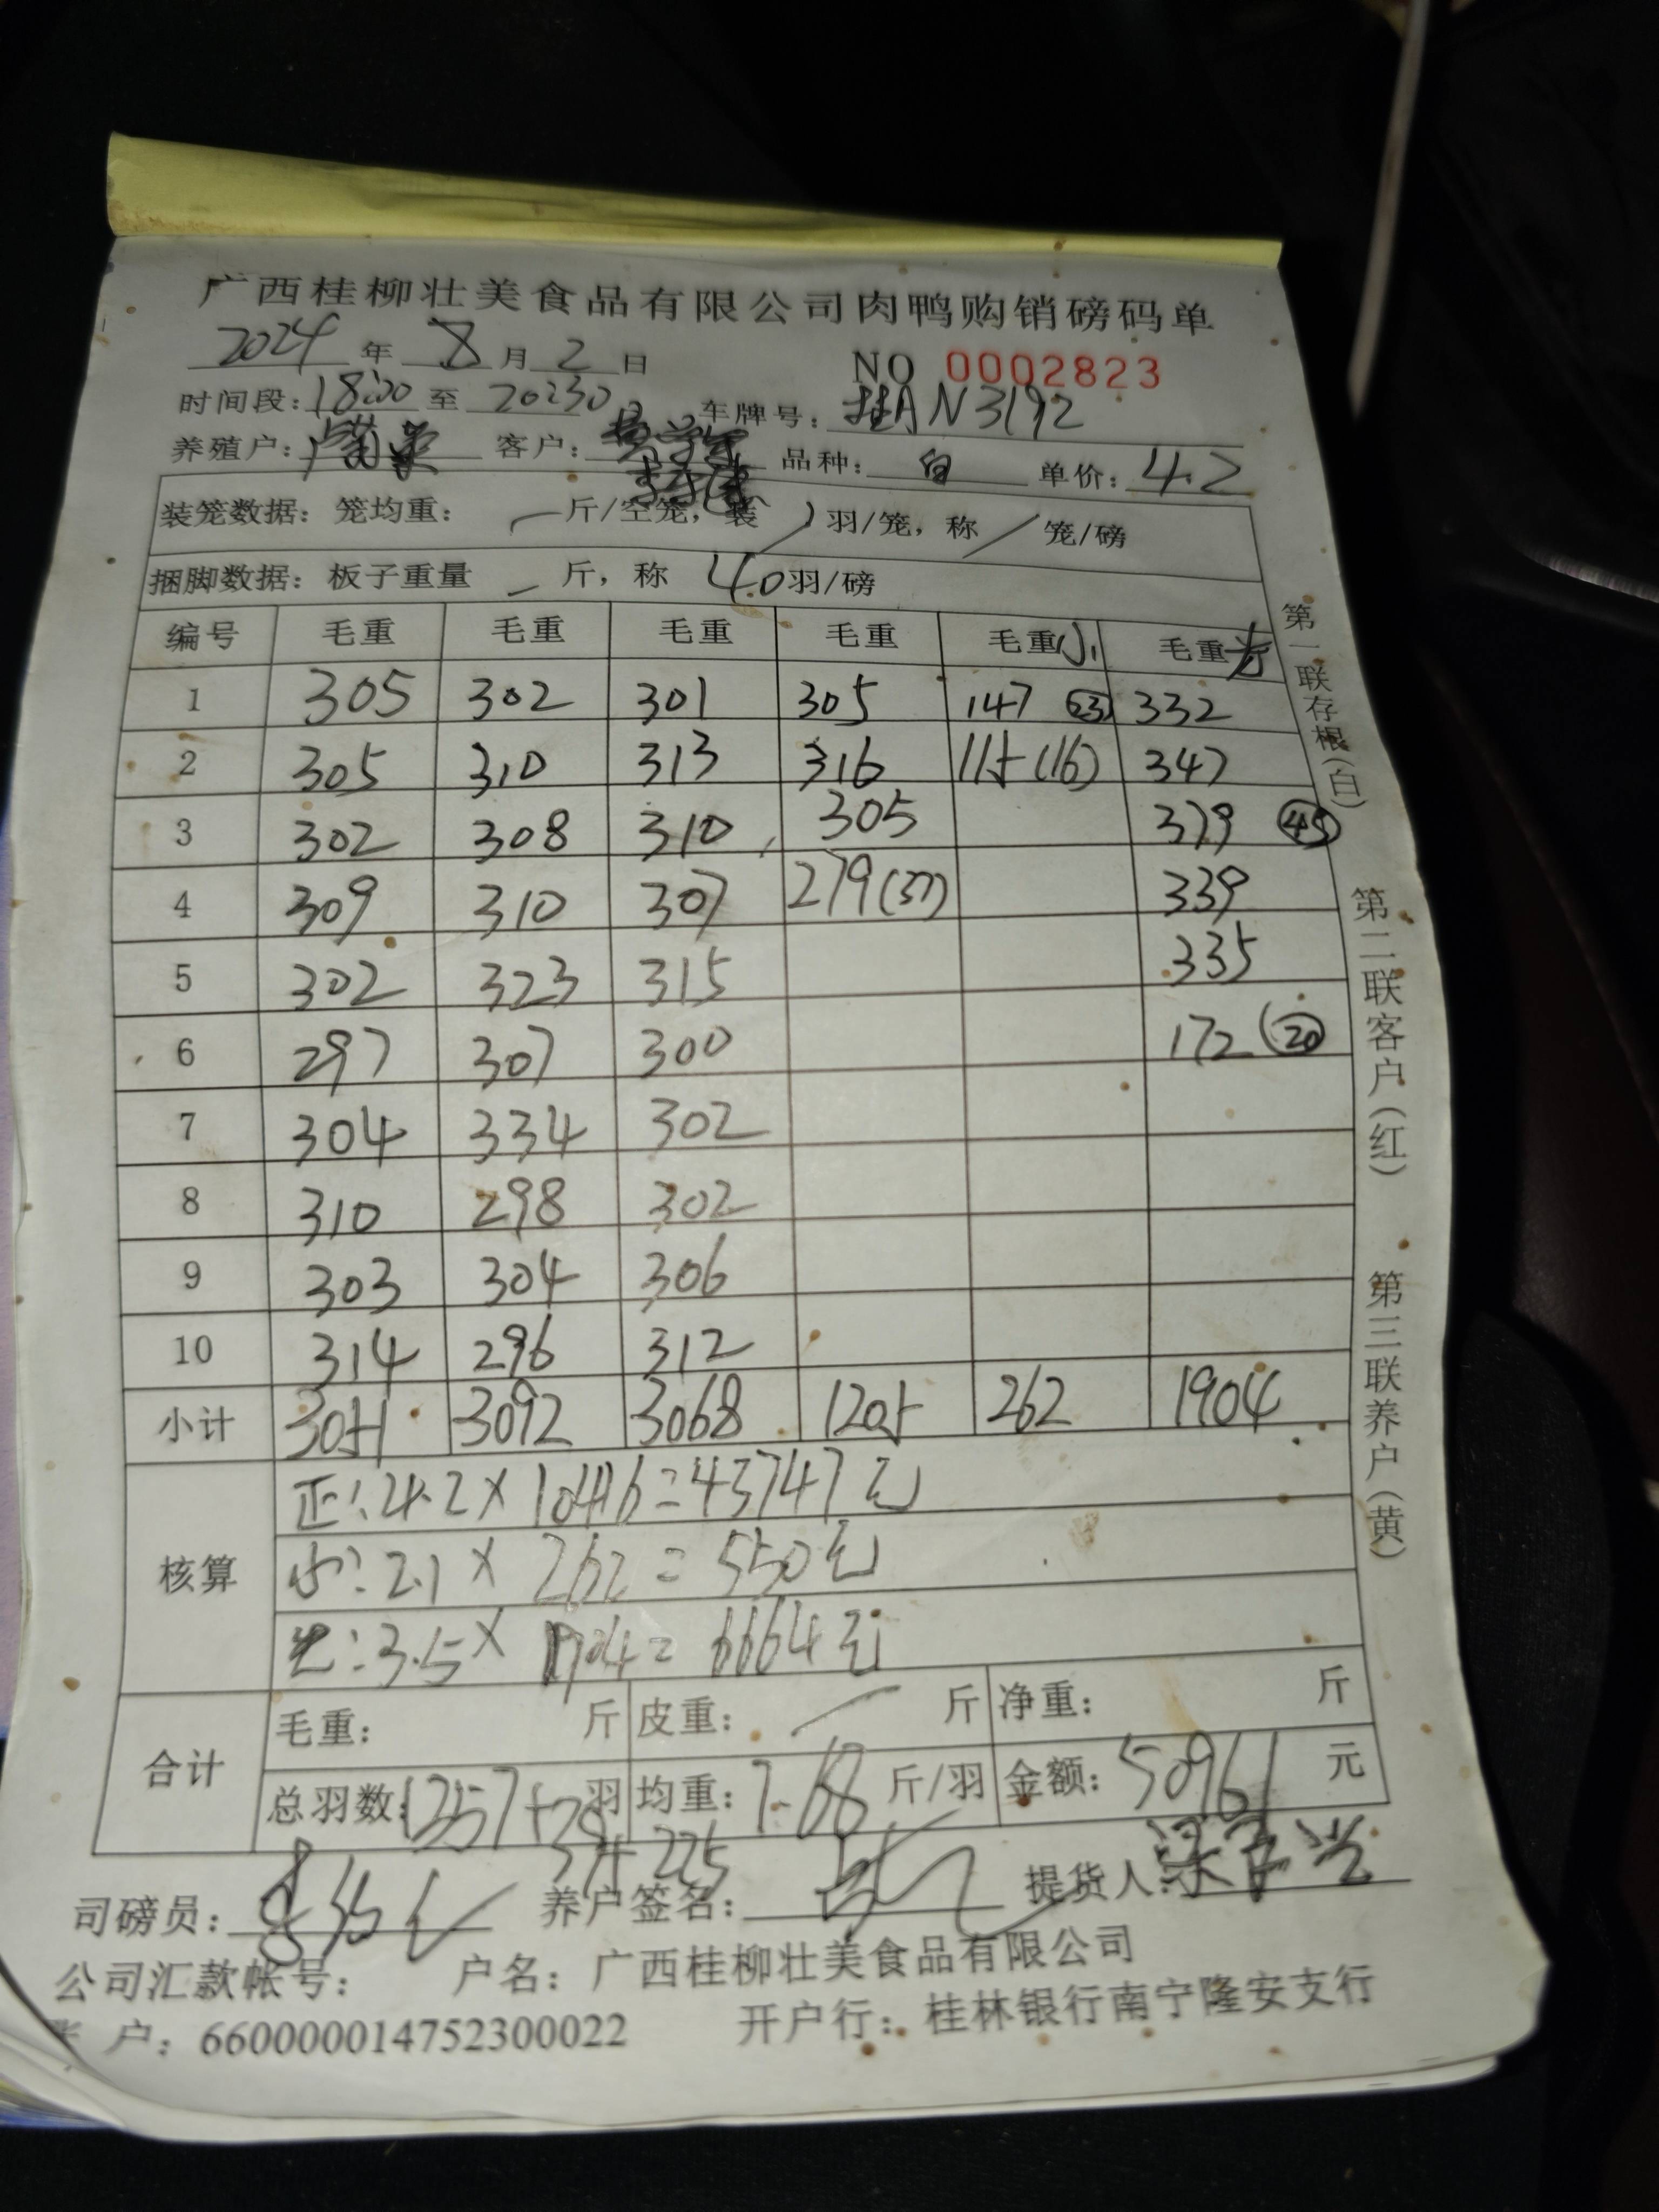 广西桂柳壮美食品有限公司肉鸭购销磅码单
2024 年 8 月 2 日 NO 0002823
时间段: 18:00 至 20:30 车牌号: 桂AN3192
养殖户: 客户: 品种: 白 单价: 4.2
装笼数据: 笼均重: 斤/空笼, 装 / 羽/笼, 称 / 笼/磅
捆脚数据: 板子重量 斤, 称 40 羽/磅
编号 毛重 毛重 毛重 毛重 毛重小 毛重
1 305 302 301 305 147 (23) 332
2 305 310 313 316 115 (16) 347
3 302 308 310 305 379 (45)
4 309 310 307 279 (37) 339
5 302 323 315 335
6 297 307 300 172 (20)
7 304 334 302
8 310 298 302
9 303 304 306
10 314 296 312
小计 3051 3092 3068 1205 262 1904
核算
正: 4.2 × 10416 = 43747元
小: 2.1 × 262 = 550元
: 3.5 × 1904 = 6664元
合计
毛重: 斤 皮重: 斤 净重: 斤
总羽数: 1257+ 羽 均重: 7.68 斤/羽 金额: 50961 元
225
司磅员: 养户签名: 提货人:
公司汇款帐号: 户名: 广西桂柳壮美食品有限公司
户: 660000014752300022 开户行: 桂林银行南宁隆安支行
第一联存根(白)
第二联客户(红)
第三联养户(黄)